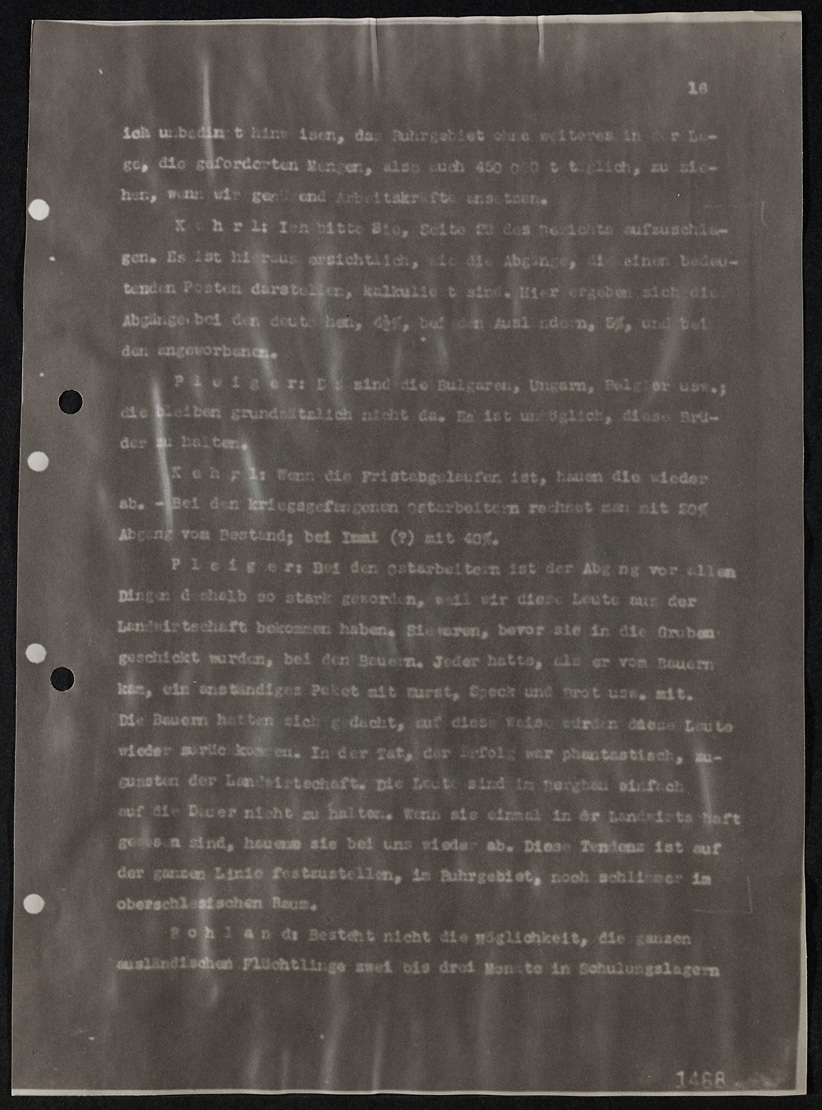 16
ich unbedingt hinweisen, das Ruhrgebiet ohne weiteres in der La-
ge, die geforderten Mengen, also auch 450 000 t täglich, zu zie-
hen, wenn wir genügend Arbeitskräfte ansetzen.
K e h r l: Ich bitte Sie, Seite 20 des Berichts aufzuschla-
gen. Es ist hieraus ersichtlich, wie die Abgänge, die einen bedeu-
tenden Posten darstellen, kalkuliert sind. Hier ergeben sich die
Abgänge bei den deutschen, 4½%, bei den Ausländern, 5%, und bei
den angeworbenen.
P l e i g e r: Das sind die Bulgaren, Ungarn, Belgier usw.;
die bleiben grundsätzlich nicht da. Es ist unmöglich, diese Brü-
der zu halten.
K e h r l: Wenn die Fristabgelaufen ist, hauen die wieder
ab. - Bei den kriegsgefangenen Ostarbeitern rechnet man mit 20%
Abgang vom Bestand; bei Immi (?) mit 40%.
P l e i g e r: Bei den Ostarbeitern ist der Abgang vor allen
Dingen deshalb so stark geworden, weil wir diese Leute aus der
Landwirtschaft bekommen haben. Siewaren, bevor sie in die Gruben
geschickt wurden, bei den Bauern. Jeder hatte, als er vom Bauern
kam, ein anständiges Paket mit Wurst, Speck und Brot usw. mit.
Die Bauern hatten sich gedacht, auf diese Weise würden diese Leute
wieder zurückkommen. In der Tat, der Erfolg war phantastisch, zu-
gunsten der Landwirtschaft. Die Leute sind im Bergbau einfach
auf die Dauer nicht zu halten. Wenn sie einmal in dr Landwirtschaft
gewesen sind, hauen sie bei uns wieder ab. Diese Tendenz ist auf
der ganzen Linie festzustellen, im Ruhrgebiet, noch schlimmer im
oberschlesischen Raum.
R o h l a n d: Besteht nicht die Möglichkeit, die ganzen
ausländischen Flüchtlinge zwei bis drei Monate in Schulungslagern
1468